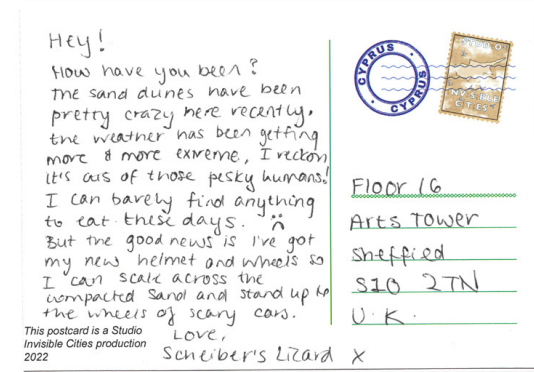 Hey!
How have you been?
The sand dunes have been
pretty crazy here recently.
the weather has been getting
more & more extreme, I reckon
it's cus of those pesky humans!
I can barely find anything
to eat these days. :(
But the good news is I've got
my new helmet and wheels so
I can scale across the
compacted sand and stand up to
the wheels of scary cars.
Love,
Scheiber's Lizard X
This postcard is a Studio
Invisible Cities production
2022
CYPRUS
CYPRUS
STUDIO
INVISIBLE
CITIES
Floor 16
Arts Tower
Sheffied
S10 2TN
U.K.